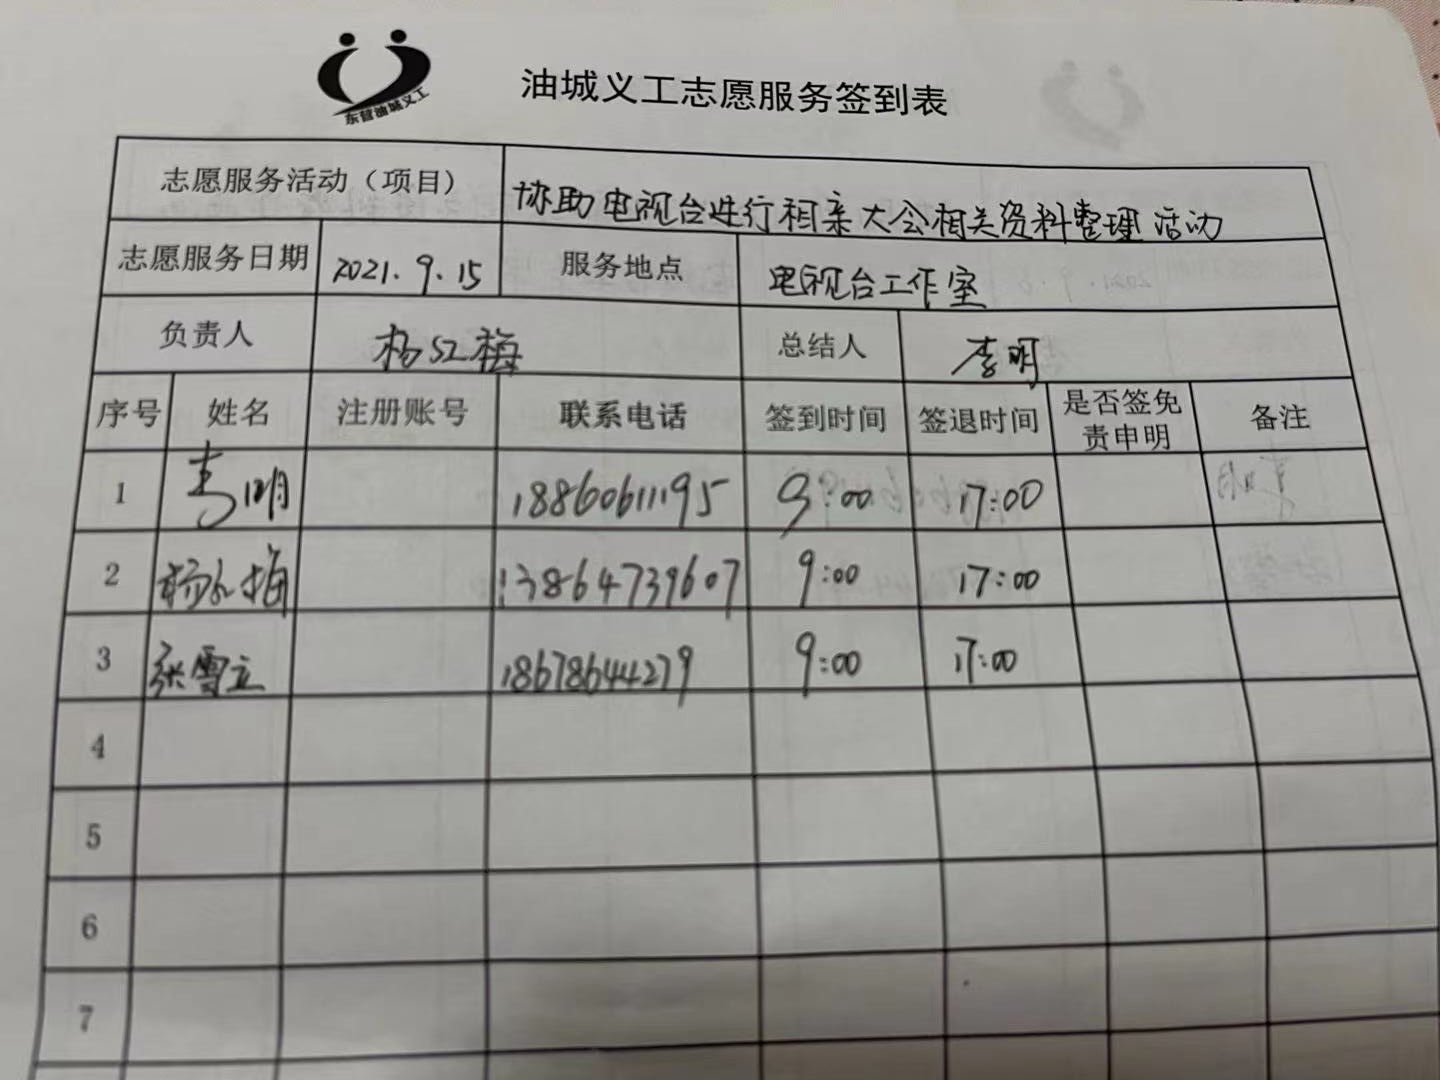 东营油城义工
油城义工志愿服务签到表
志愿服务活动（项目） 协助电视台进行相亲大会相关资料整理活动
志愿服务日期 2021.9.15 服务地点 电视台工作室
负责人 杨红梅 总结人 李明
序号 姓名 注册账号 联系电话 签到时间 签退时间 是否签免责申明 备注
1 李明 18860611195 9:00 17:00
2 杨红梅 13864739607 9:00 17:00
3 张雪立 18678644279 9:00 17:00
4
5
6
7